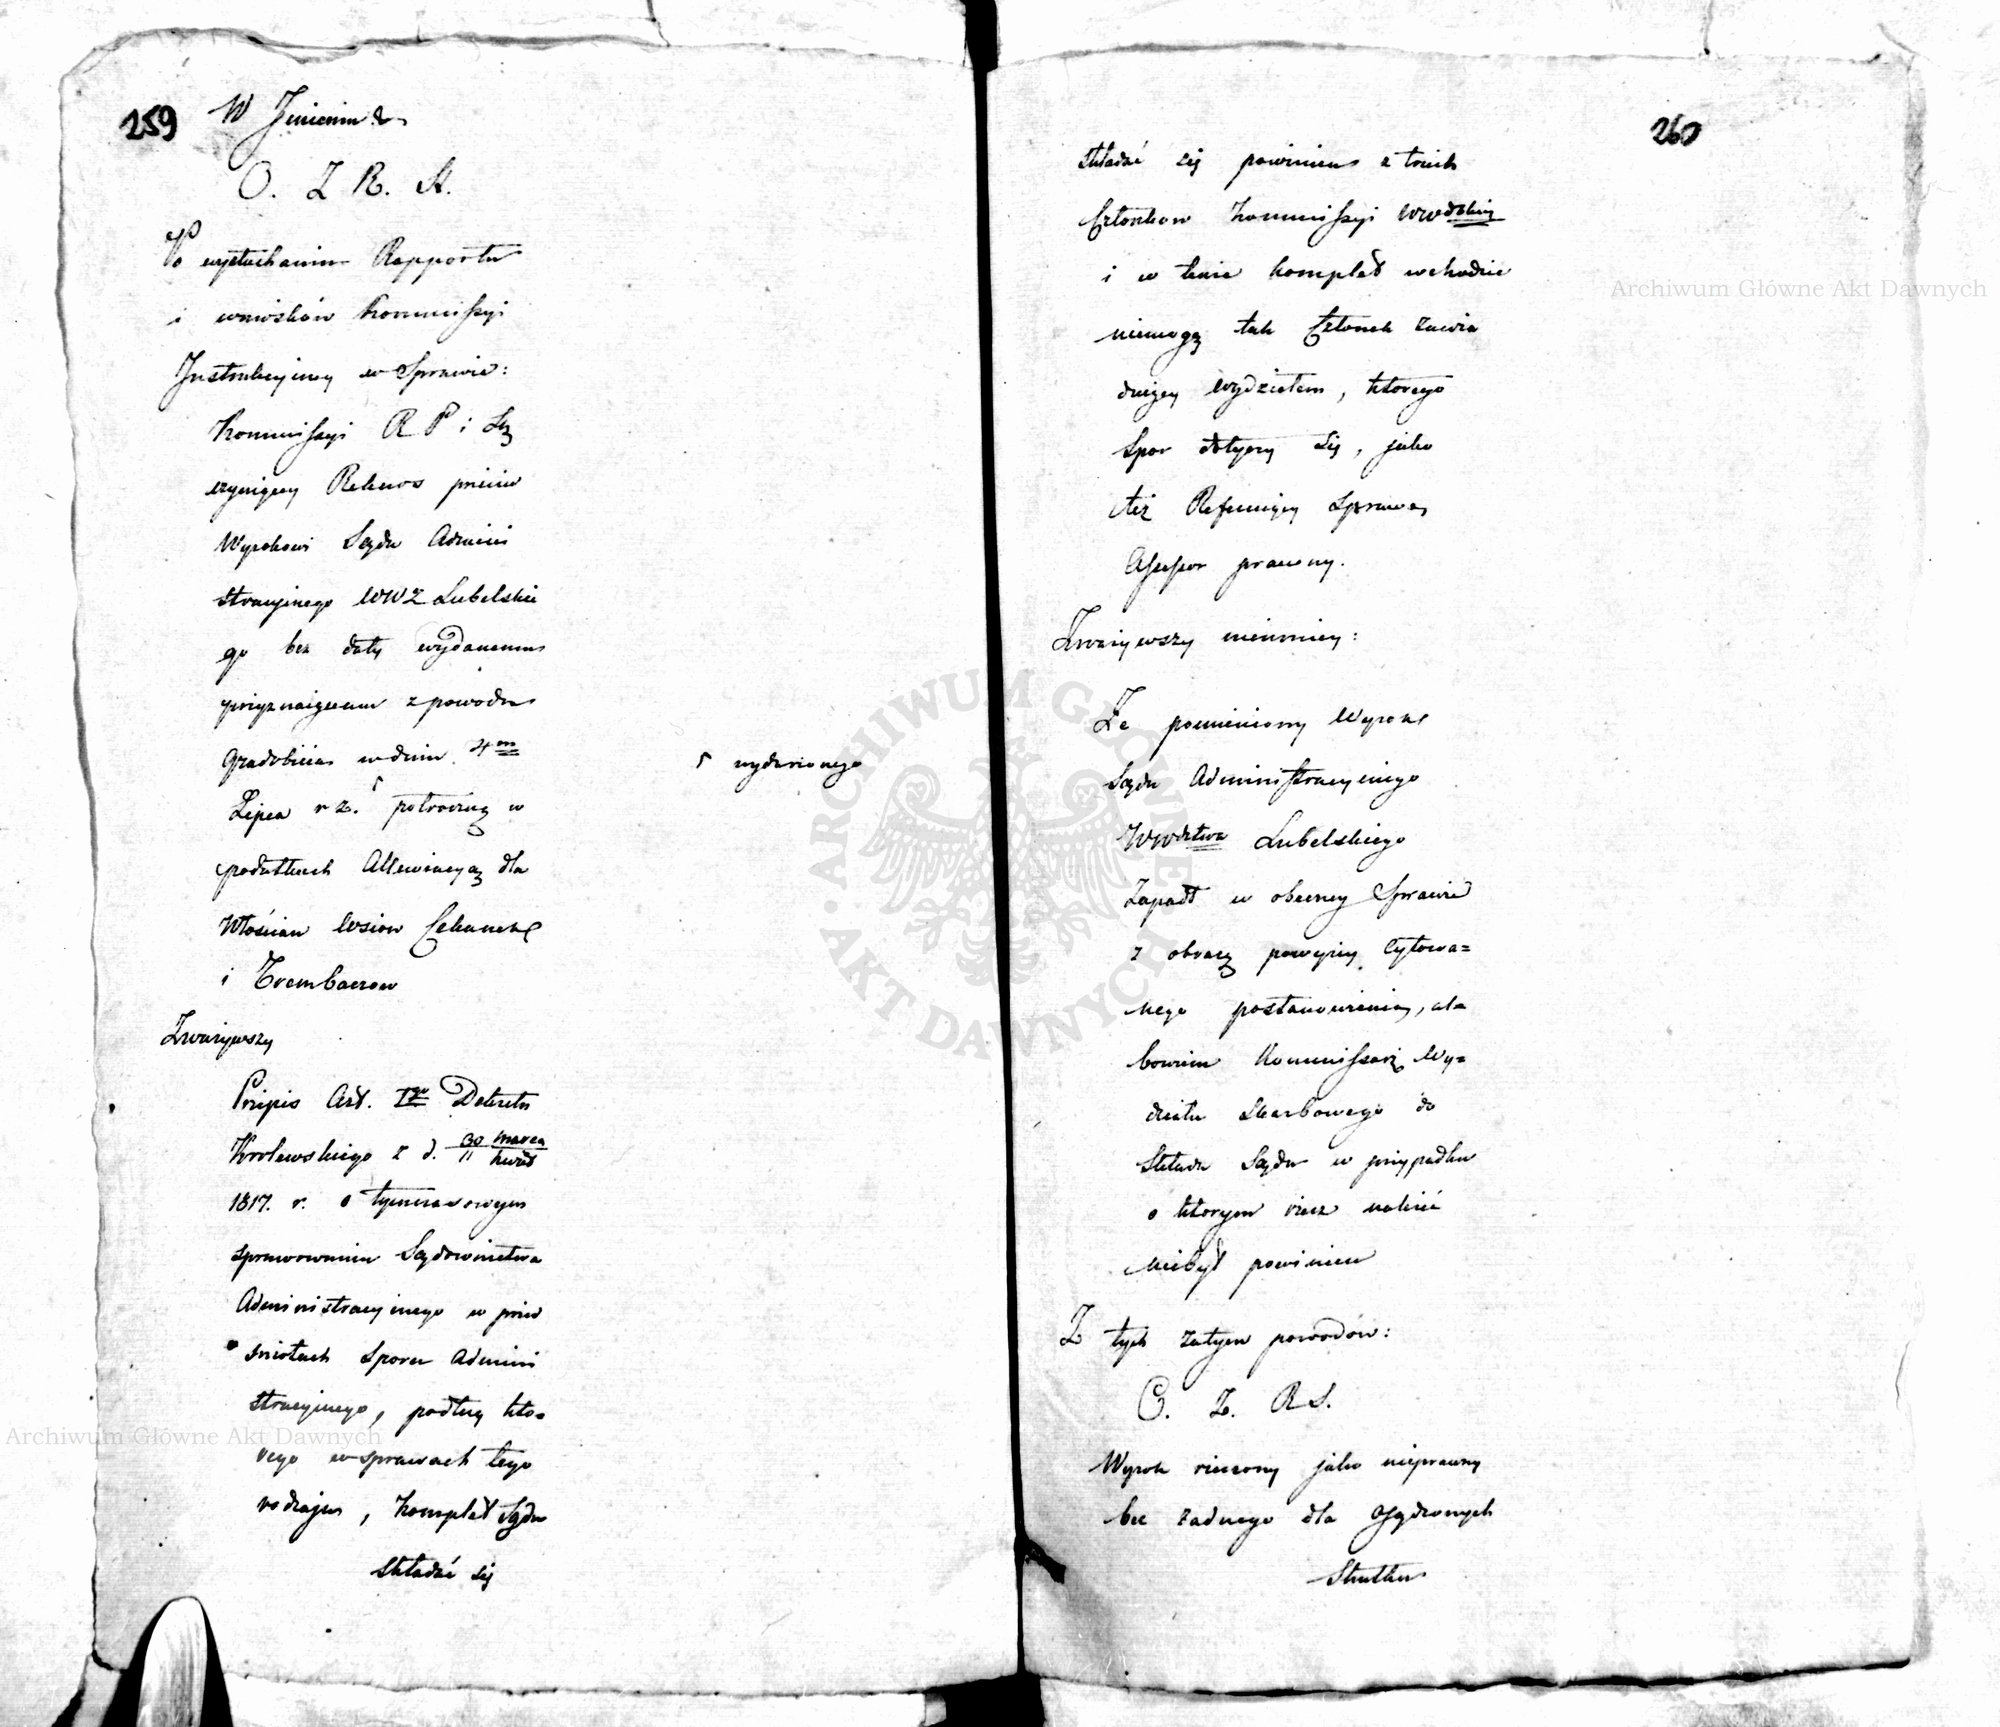 259
W Jmieniu &
O. Z R. S.
Po wysłuchaniu Rapportu
i wniosków Kommissyi
Instrukcyiney w Sprawie:
Kommissyi R P i Sk
czyniącey Rekurs przeciw
Wyrokowi Sądu Admini
stracyinego WWZ Lubelskie
go bez daty wydanemu
przyznaiącemu z powodu
Gradobicia w dniu 4go
Lipca r z. potroczną w
podatkach Allewiacyą dla
Włościan Wsiow
i Trembaczow
Zważywszy
Przepis Art. Igo Dekretu
Krolewskiego z d. 30 marca / 11 kwiet
1817. r. o tymczasowym
sprawowaniu Sądownictwa
Administracyinego w przed
miotach Sporu Admini
stracyinego, podług kto=
rego w sprawach tego
rodzaju, Komplet Sądu
składać się
wydarzonego
260
składać się powinien z trzech
Członkow Kommissyi Wwdzkiey
i w tenże komplet wchodzić
niemogą tak Członek zawia
duiący Wydziałem, którego
Spor dotyczy się, jako
też Referuiący Sprawę
Assessor prawny.
Zważywszy niemniey:
Że pomieniony Wyrok
Sądu Administracyinego
Wwdztwa Lubelskiego
Zapadł w obecney Sprawie
z obrazą powyżey Cytowa=
nego postanowienia, al=
bowiem Kommissarz Wy=
działu Skarbowego do
Składu Sądu w przypadku
o którym rzecz należeć
niebył powinien
Z tych zatym powodów:
O. Z. R S.
Wyrok rzeczony jako nieprawny
bez żadnego dla Osądzonych
Skutku
Archiwum Główne Akt Dawnych
Archiwum Główne Akt Dawnych
ARCHIWUM GŁÓWNE • AKT DAWNYCH •